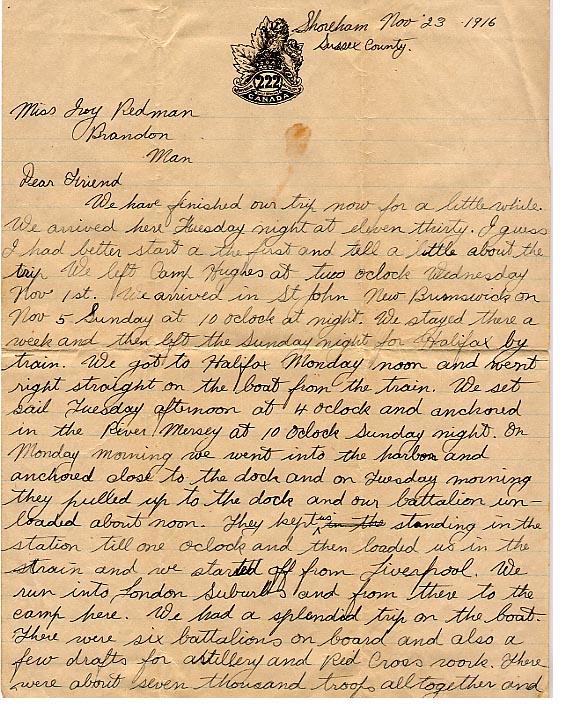 Shoreham Nov 23 1916
Sussex County.
222
CANADA
Miss Ivy Redman
Brandon
Man
Dear Friend
We have finished our trip now for a little while.
We arrived here Tuesday night at eleven thirty. I guess
I had better start a the first and tell a little about the
trip We left Camp Hughes at two oclock Wednesday
Nov 1st. We arrived in St John New Brunswick on
Nov 5 Sunday at 10 oclock at night. We stayed there a
week and then left the Sunday night for Halifax by
train. We got to Halifax Monday noon and went
right straight on the boat from the train. We set
sail Tuesday afternoon at 4 oclock and anchored
in the River Mersey at 10 oclock Sunday night. On
Monday morning we went into the harbor and
anchored close to the dock and on Tuesday morning
they pulled up to the dock and our battalion un-
loaded about noon. They kept us in the standing in the
station till one oclock and then loaded us in the
train and we started off from Liverpool. We
run into London Suburbs and from there to the
camp here. We had a splendid trip on the boat.
There were six battalions on board and also a
few drafts for artillery and Red Cross work. There
were about seven thousand troops alltogether and